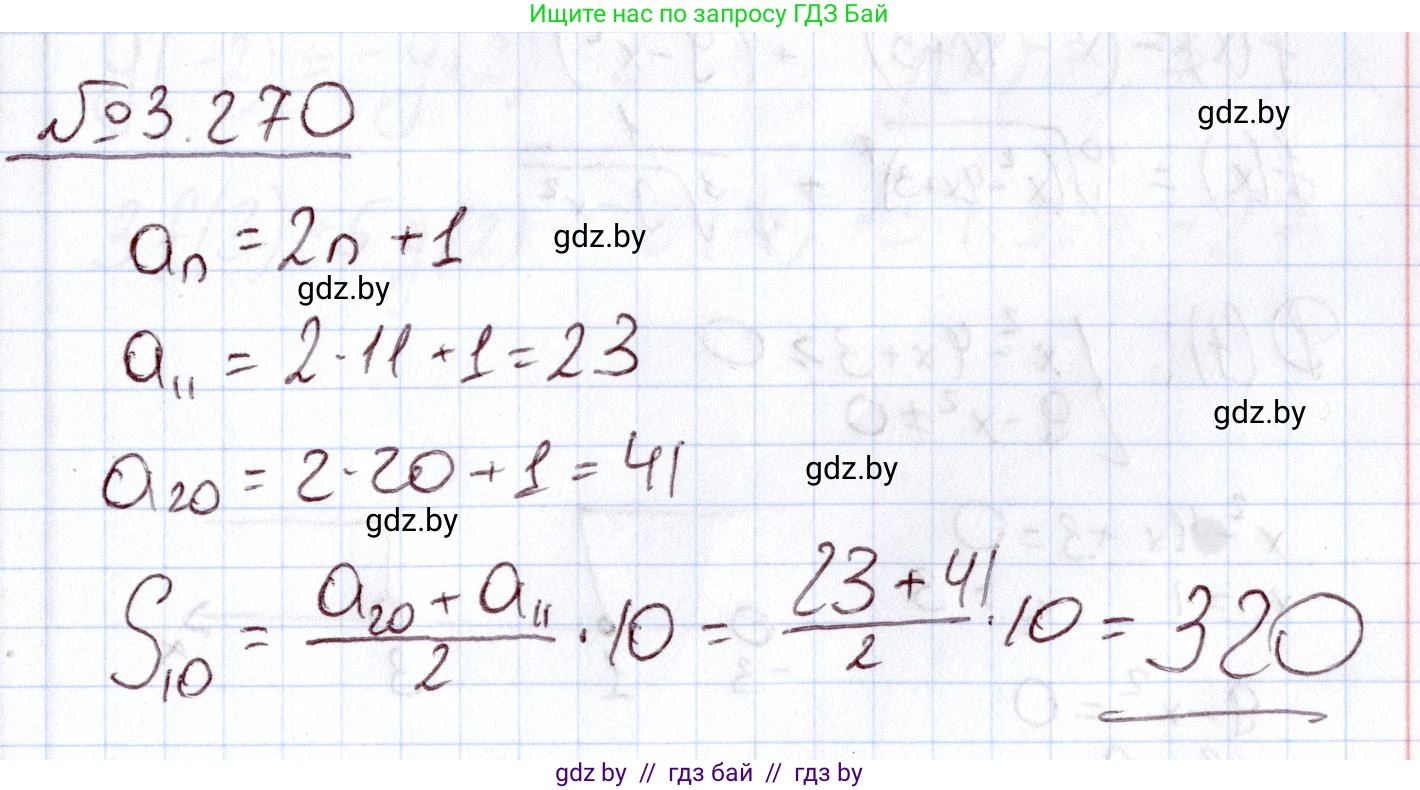 Ищите нас по запросу ГДЗ Бай
№3.270
gdz.by
aₙ = 2n + 1
gdz.by
gdz.by
a₁₁ = 2·11 + 1 = 23
gdz.by
a₂₀ = 2·20 + 1 = 41
gdz.by
gdz.by
S₁₀ = (a₂₀ + a₁₁)/2 · 10 = (23 + 41)/2 · 10 = 320
gdz by // гдз бай // гдз by